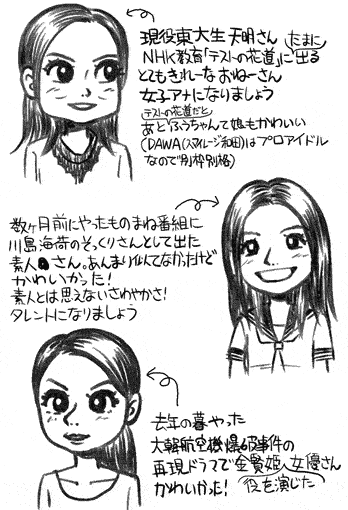 現役東大生 天明さん たまに
NHK教育「テストの花道」に出る
とてもきれーなおねーさん
女子アナになりましょう
テストの花道だと
あとふうちゃんて娘もかわいい
(DAWA(スマイレージ和田)はプロアイドル
なので別枠別格)
数ヶ月前にやったものまね番組に
川島海荷のそっくりさんとして出た
素人さん。あんまり似てなかったけど
かわいかった!
素人とは思えないさわやかさ!
タレントになりましょう
去年の暮やった
大韓航空機爆破事件の
再現ドラマで金賢姫
役を演じた
女優さん
かわいかった!